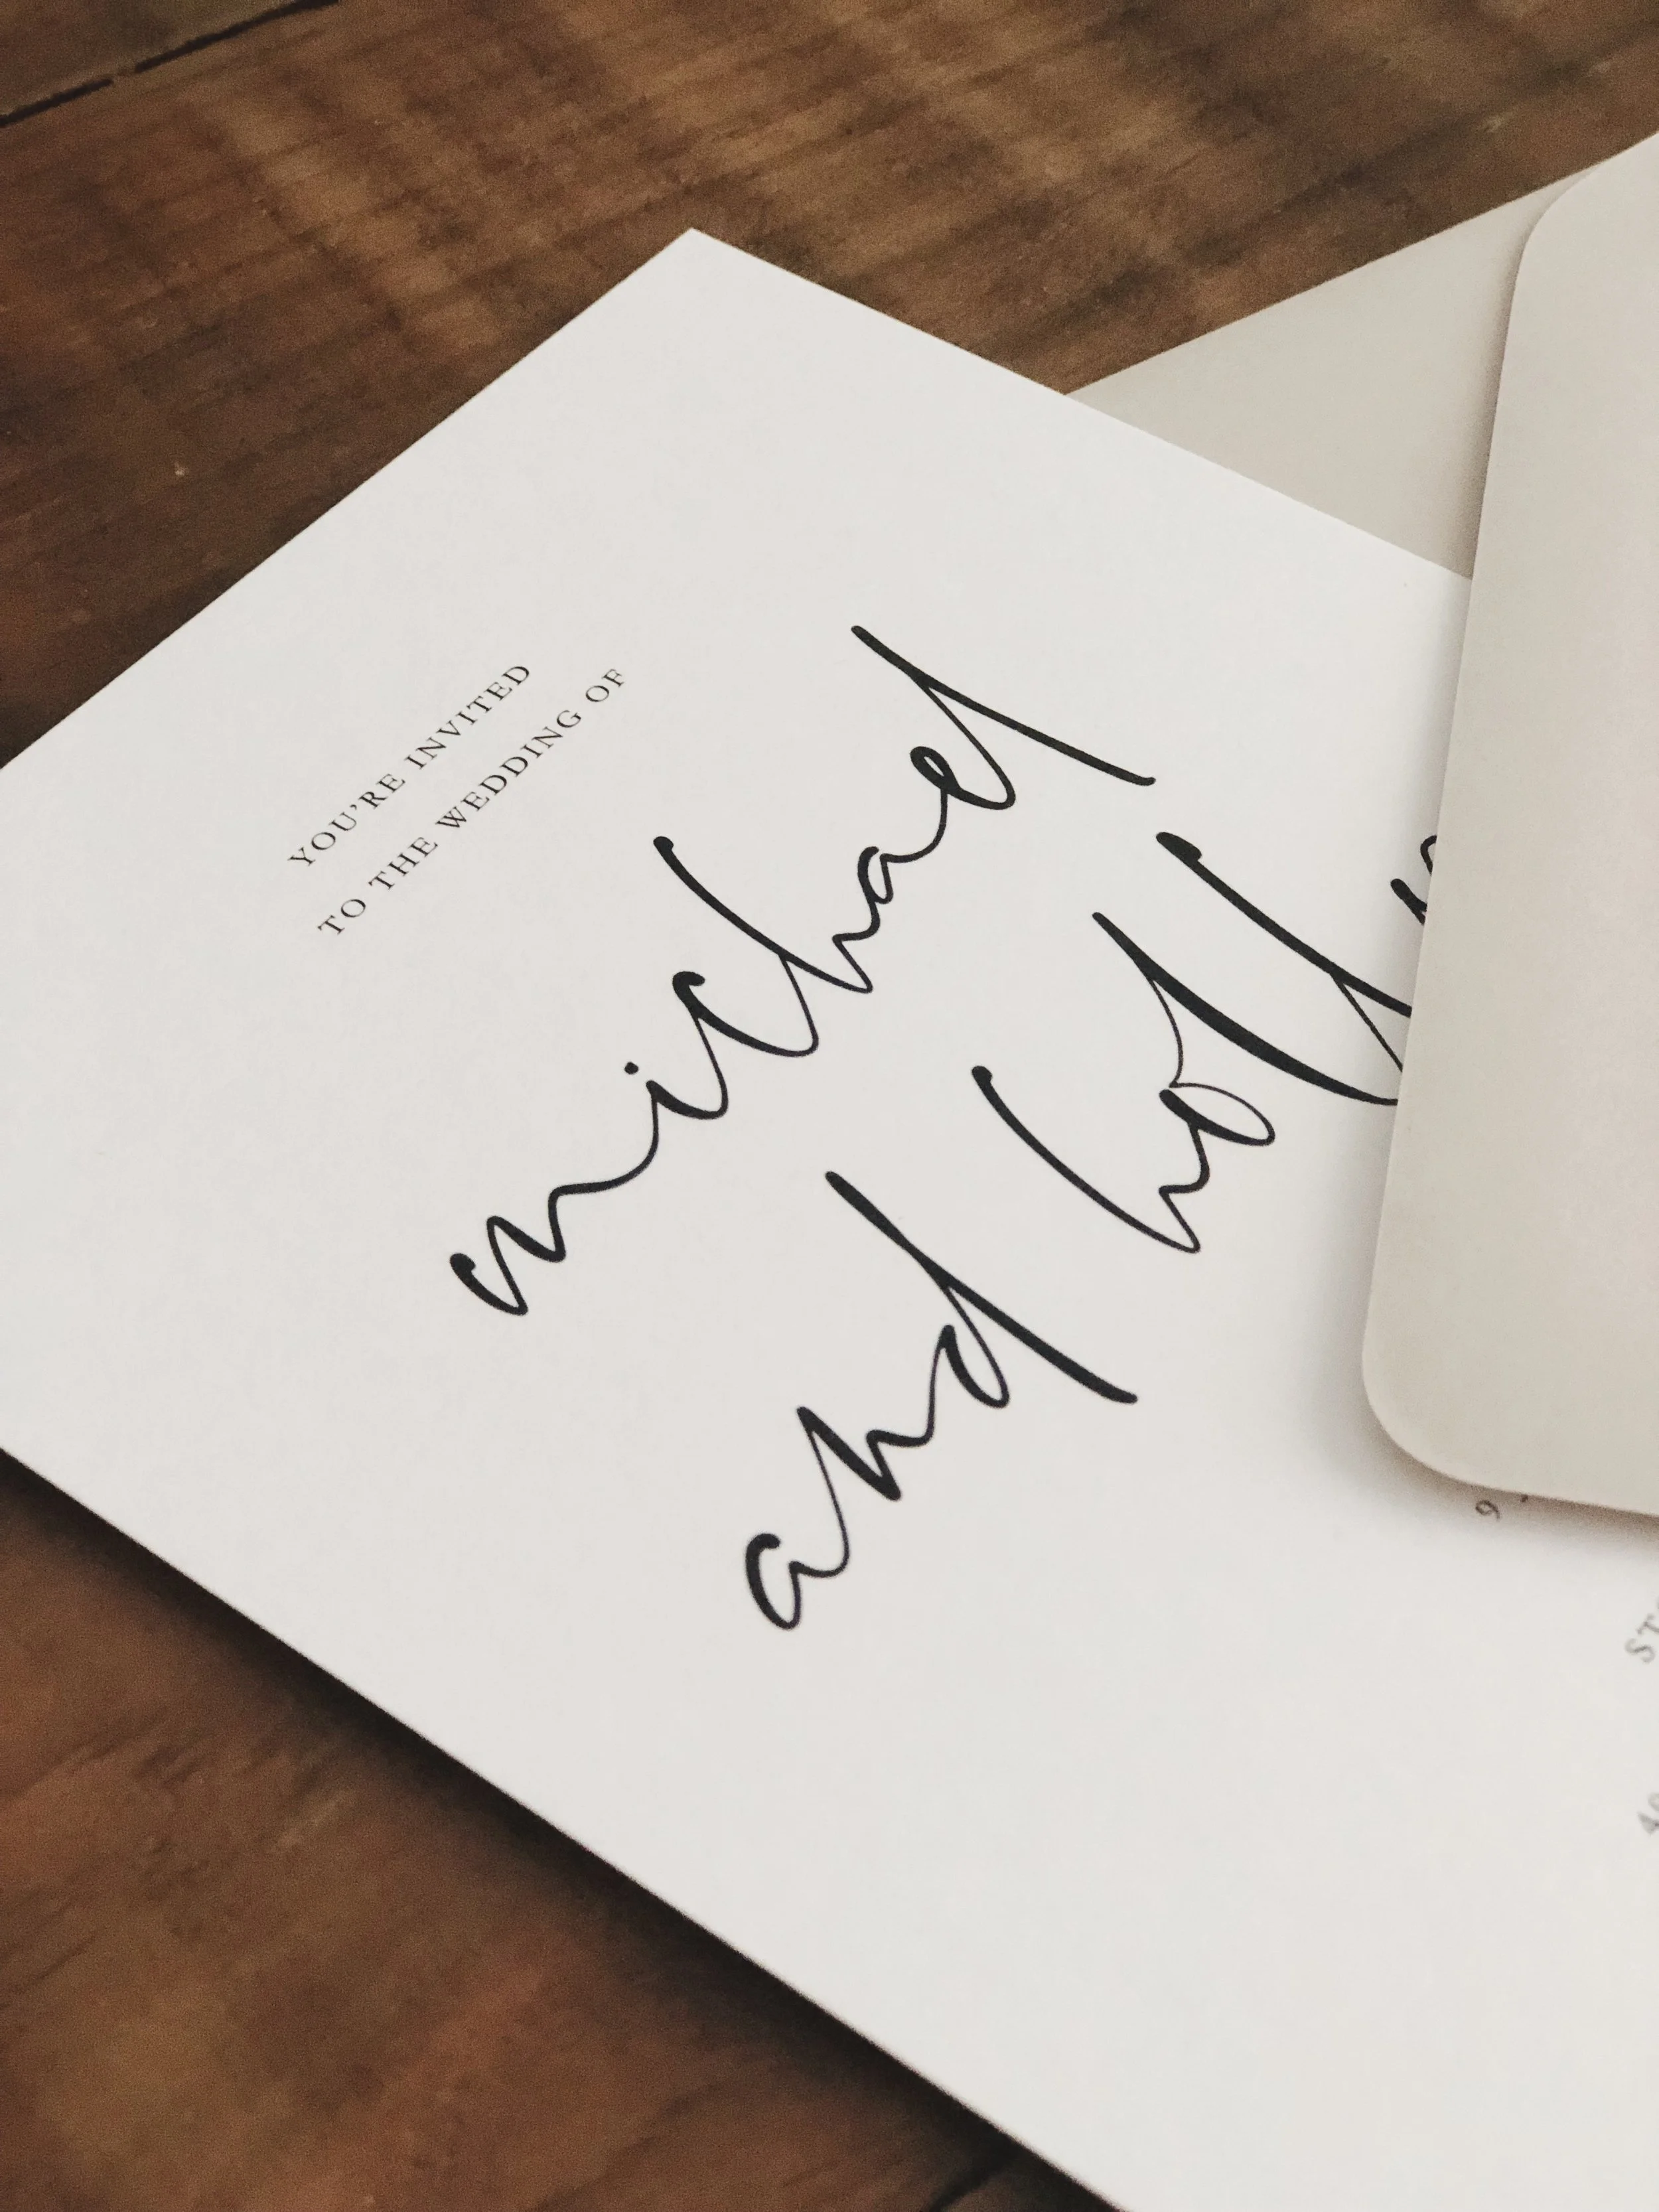 YOU'RE INVITED
TO THE WEDDING OF
michael
and